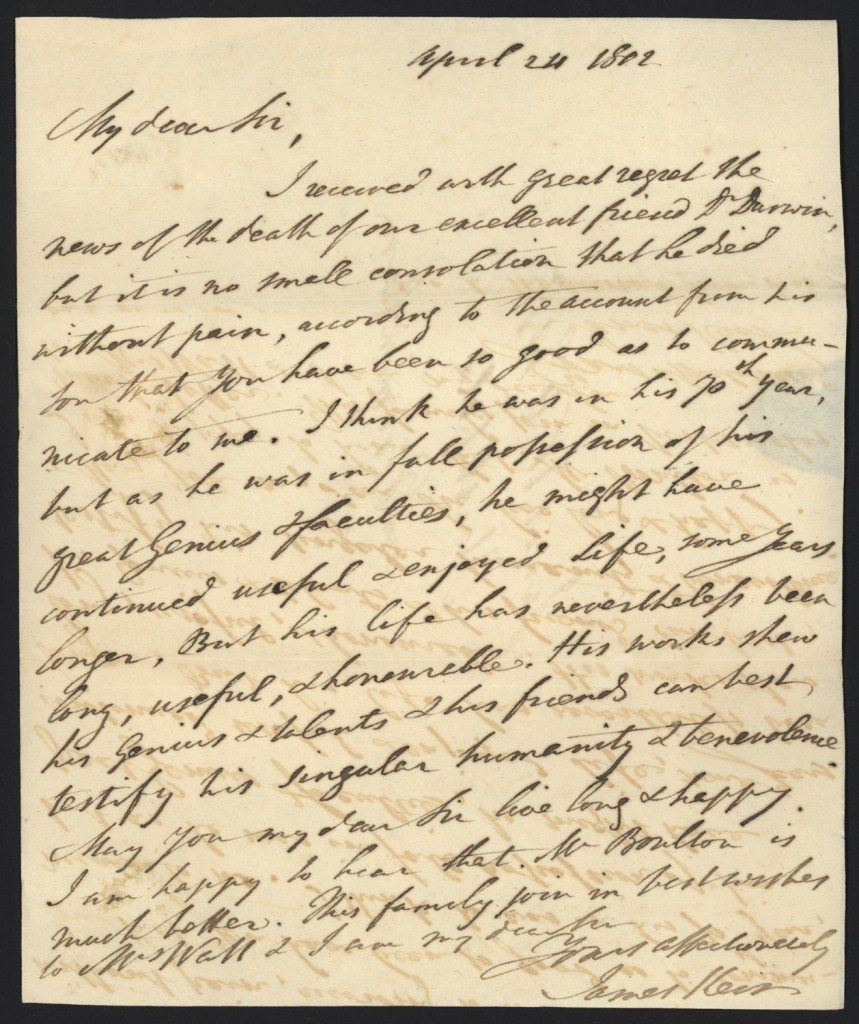 April 24 1802
My dear Sir,
I received with great regret the
news of the death of our excellent friend Dr Darwin,
but it is no small consolation that he died
without pain, according to the account from his
son that You have been so good as to commu-
nicate to me. I think he was in his 70th year,
but as he was in full possession of his
great Genius & faculties, he might have
continued useful & enjoyed Life, some Years
longer, But his life has nevertheless been
long, useful, & honourable. His works shew
his Genius & talents & his friends can best
testify his singular humanity & benevolence.
May You my dear Sir live long & happy.
I am happy to hear that Mr Boulton is
much better. This family join in best wishes
to Mrs Watt & I am my dear Sir
Yours affectionately
James Keir